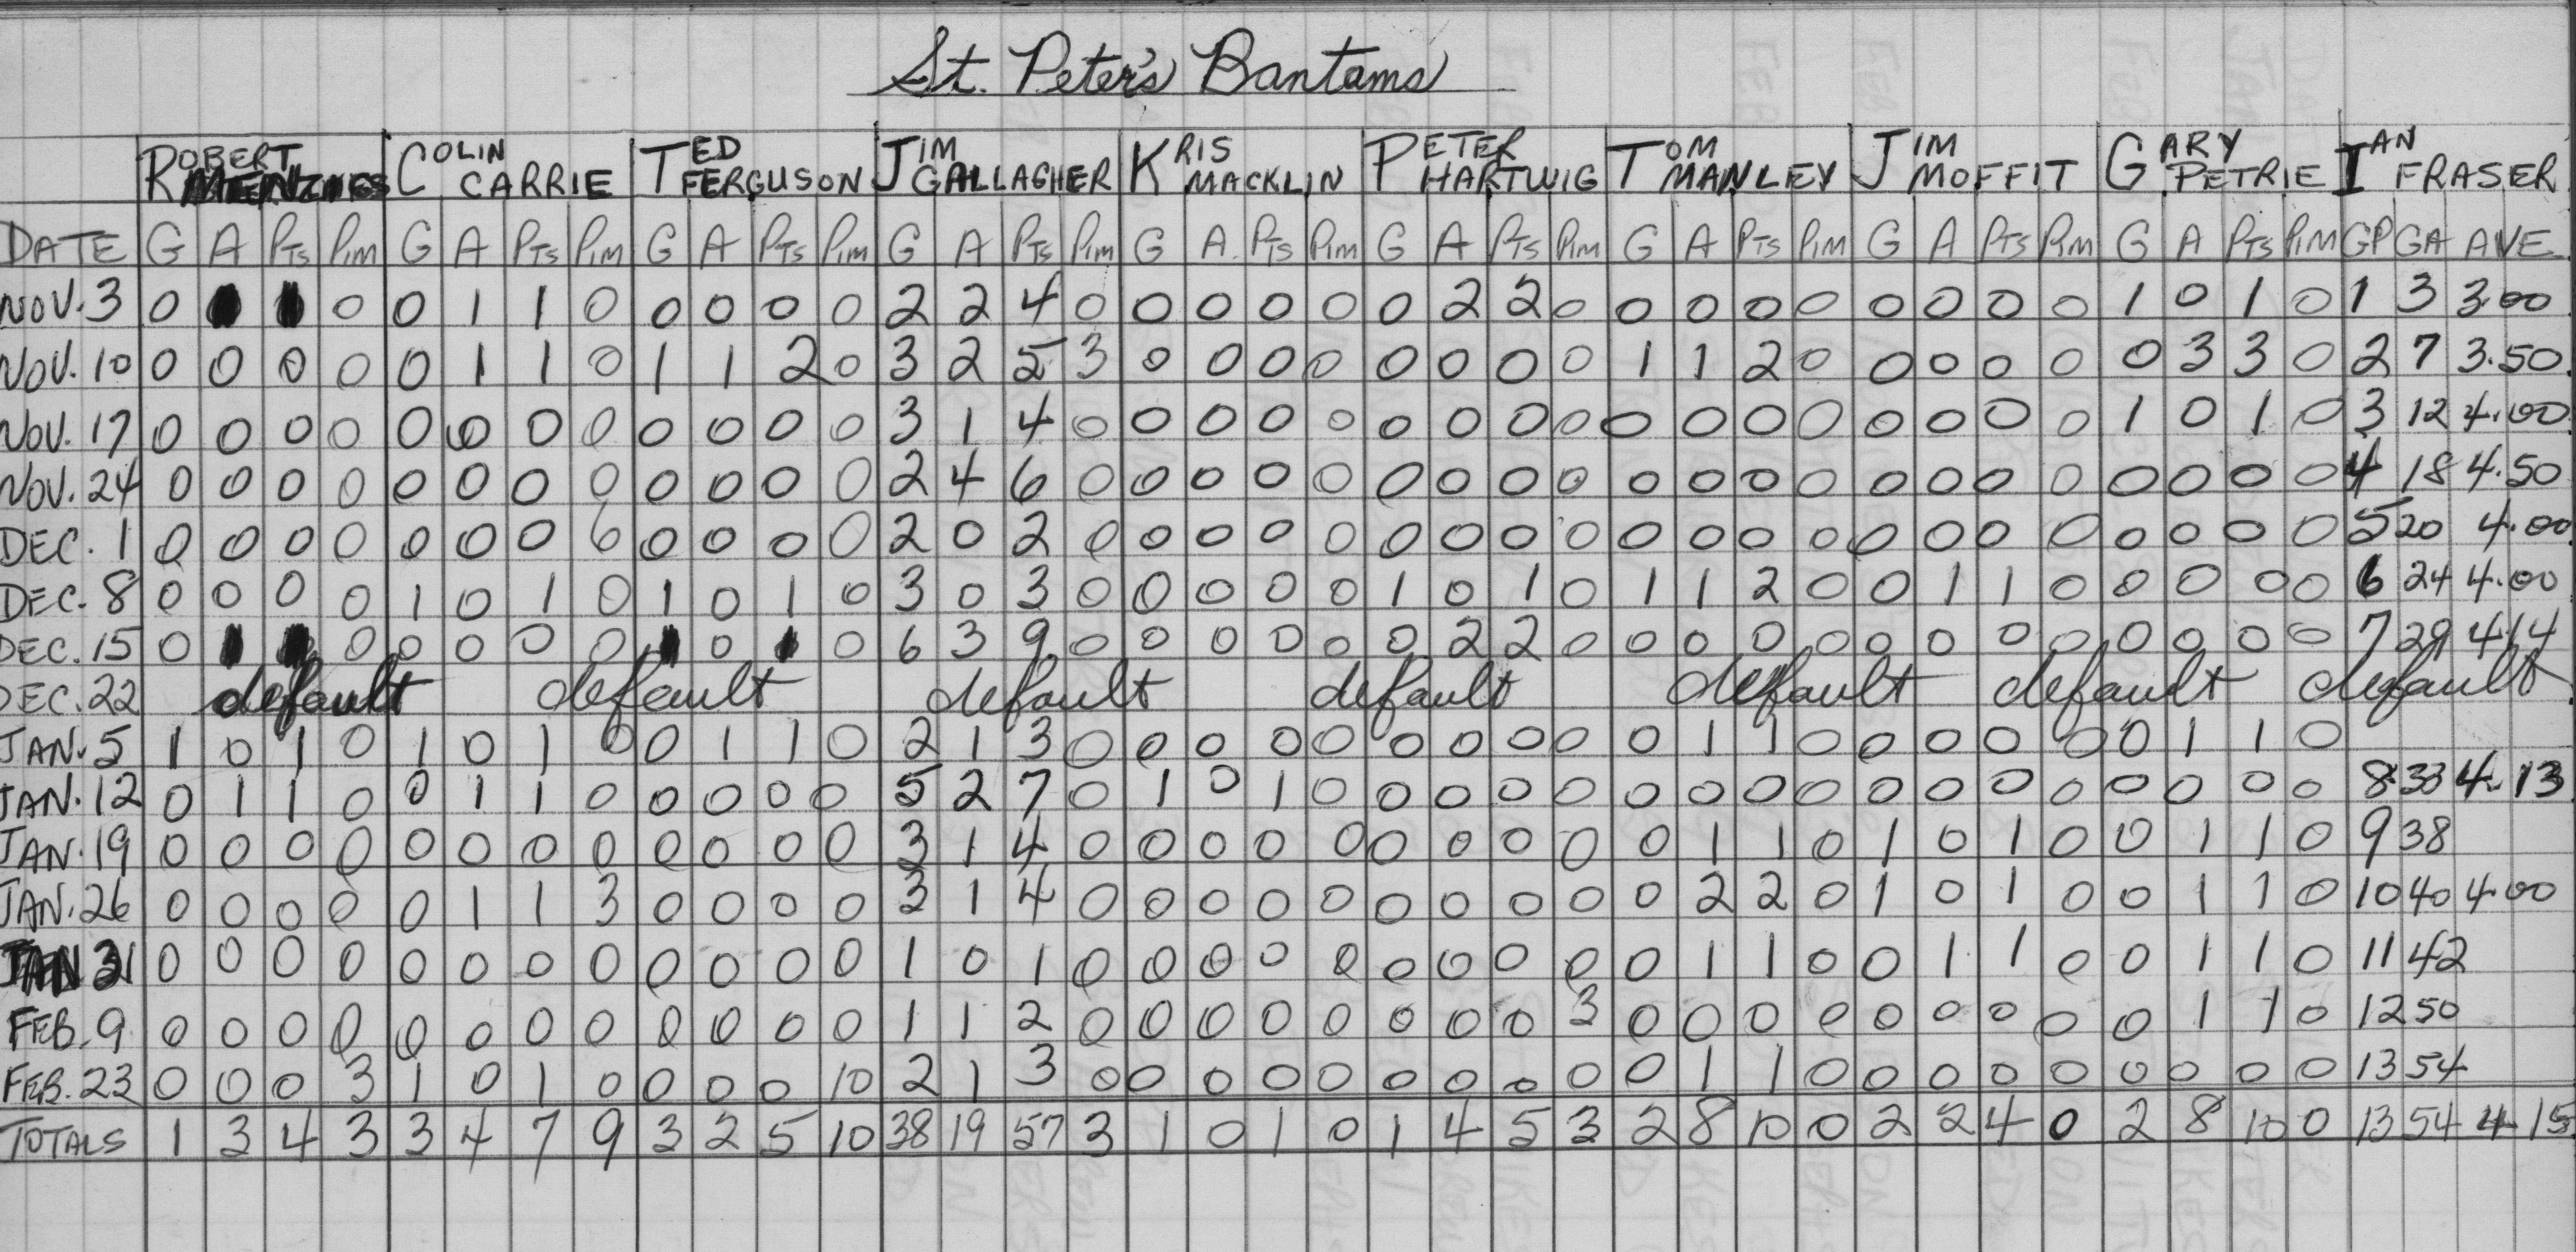 St. Peter's Bantams
ROBERT COLIN CARRIE TED FERGUSON JIM GALLAGHER KRIS MACKLIN PETER HARTWIG TOM MANLEY JIM MOFFIT GARY PETRIE IAN FRASER
DATE G A PTS PIM G A PTS PIM G A PTS PIM G A PTS PIM G A. PTS PIM G A PTS PIM G A PTS PIM G A PTS PIM G A PTS PIM GP GA AVE
NOV. 3 0 1 1 0 0 1 1 0 0 0 0 0 2 2 4 0 0 0 0 0 0 2 2 0 0 0 0 0 0 0 0 0 1 0 1 0 1 3 3.00
NOV. 10 0 0 0 0 0 1 1 0 1 1 2 0 3 2 5 3 0 0 0 0 0 0 0 0 1 1 2 0 0 0 0 0 0 3 3 0 2 7 3.50
NOV. 17 0 0 0 0 0 0 0 0 0 0 0 0 3 1 4 0 0 0 0 0 0 0 0 0 0 0 0 0 0 0 0 0 1 0 1 0 3 12 4.00
NOV. 24 0 0 0 0 0 0 0 0 0 0 0 0 2 4 6 0 0 0 0 0 0 0 0 0 0 0 0 0 0 0 0 0 0 0 0 0 4 18 4.50
DEC. 1 0 0 0 0 0 0 0 6 0 0 0 0 2 0 2 0 0 0 0 0 0 0 0 0 0 0 0 0 0 0 0 0 0 0 0 0 5 20 4.00
DEC. 8 0 0 0 0 1 0 1 0 1 0 1 0 3 0 3 0 0 0 0 0 1 0 1 0 1 1 2 0 0 1 1 0 0 0 0 0 6 24 4.00
DEC. 15 0 1 1 0 0 0 0 0 1 0 1 0 6 3 9 0 0 0 0 0 0 2 2 0 0 0 0 0 0 0 0 0 0 0 0 0 7 29 4.14
DEC. 22 default default default default default default default
JAN. 5 1 0 1 0 1 0 1 0 0 1 1 0 2 1 3 0 0 0 0 0 0 0 0 0 0 1 1 0 0 0 0 0 0 1 1 0
JAN. 12 0 1 1 0 0 1 1 0 0 0 0 0 5 2 7 0 1 0 1 0 0 0 0 0 0 0 0 0 0 0 0 0 0 0 0 0 8 33 4.13
JAN. 19 0 0 0 0 0 0 0 0 0 0 0 0 3 1 4 0 0 0 0 0 0 0 0 0 0 1 1 0 1 0 1 0 0 1 1 0 9 38
JAN. 26 0 0 0 0 0 1 1 3 0 0 0 0 3 1 4 0 0 0 0 0 0 0 0 0 0 2 2 0 1 0 1 0 0 1 1 0 10 40 4.00
JAN 31 0 0 0 0 0 0 0 0 0 0 0 0 1 0 1 0 0 0 0 0 0 0 0 0 0 1 1 0 0 1 1 0 0 1 1 0 11 42
FEB. 9 0 0 0 0 0 0 0 0 0 0 0 0 1 1 2 0 0 0 0 0 0 0 0 3 0 0 0 0 0 0 0 0 0 1 1 0 12 50
FEB. 23 0 0 0 3 1 0 1 0 0 0 0 10 2 1 3 0 0 0 0 0 0 0 0 0 0 1 1 0 0 0 0 0 0 0 0 0 13 54
TOTALS 1 3 4 3 3 4 7 9 3 2 5 10 38 19 57 3 1 0 1 0 1 4 5 3 2 8 10 0 2 2 4 0 2 8 10 0 13 54 4 15